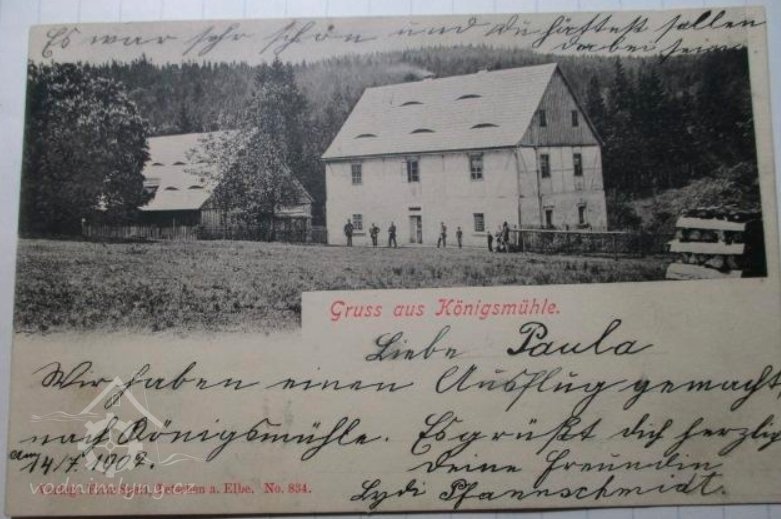 Es war sehr schön und Du hättest sollen
dabei sein.
Gruss aus Königsmühle.
Liebe Paula
Wir haben einen Ausflug gemacht
nach Königsmühle. Es grüßt dich herzlig
am 14/7. 1902.
deine Freundin
Lydi Pfannschmidt.
vodnimlyny.cz
Tetschen a. Elbe. No. 834.